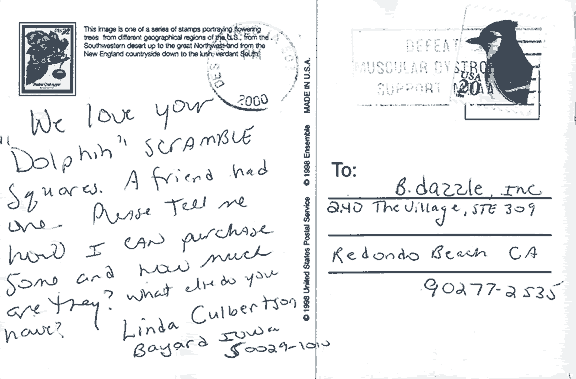 This image is one of a series of stamps portraying flowering
trees from different geographical regions of the U.S., from the
Southwestern desert up to the great Northwest and from the
New England countryside down to the lush, verdant South.
2000
We love your
"Dolphin" SCRAMBLE
Squares. A friend had
one. Please Tell me
how I can purchase
Some and how much
are they? What else do you
have?
Linda Culbertson
Bayard Iowa
50029-1010
© 1998 United States Postal Service © 1998 Ensemble MADE IN U.S.A.
DEFEAT
MUSCULAR DYSTRO
SUPPORT
USA
20
To:
B. dazzle, Inc
240 The Village, STE 309
Redondo Beach CA
90277-2535